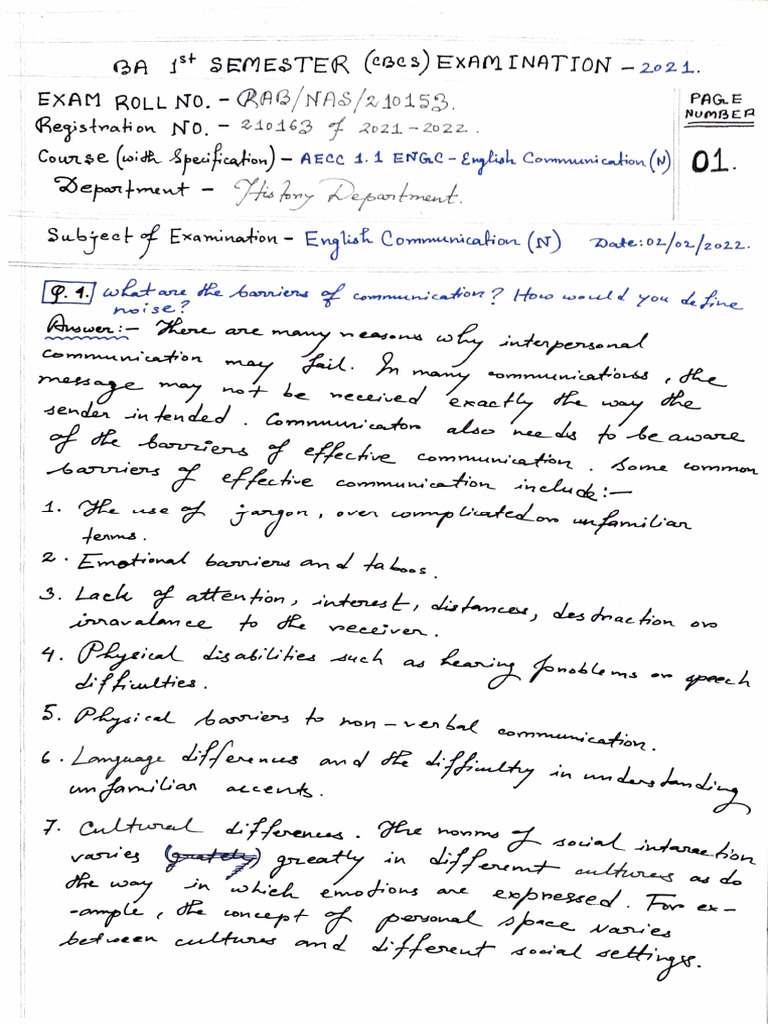 BA 1st SEMESTER (CBCS) EXAMINATION - 2021.
EXAM ROLL NO. - RAB/NAS/210153.
Registration NO. - 210163 of 2021-2022.
Course (with Specification) - AECC 1.1 ENGC - English Communication (N)
Department - History Department.
PAGE
NUMBER
01.
Subject of Examination - English Communication (N) Date: 02/02/2022.
Q.1. What are the barriers of communication? How would you define
noise?
Answer:- There are many reasons why interpersonal
communication may fail. In many communications, the
message may not be received exactly the way the
sender intended. Communicator also needs to be aware
of the barriers of effective communication. Some common
barriers of effective communication include:-
1. The use of jargon, over complicated or unfamiliar
terms.
2. Emotional barriers and taboos.
3. Lack of attention, interest, distances, destraction or
irravalance to the receiver.
4. Physical disabilities such as hearing problems or speech
difficulties.
5. Physical barriers to non-verbal communication.
6. Language differences and the difficulty in understanding
unfamiliar accents.
7. Cultural differences. The norms of social interaction
varies (grately) greatly in different cultures as do
the way in which emotions are expressed. For ex-
-ample, the concept of personal space varies
between cultures and different social settings.